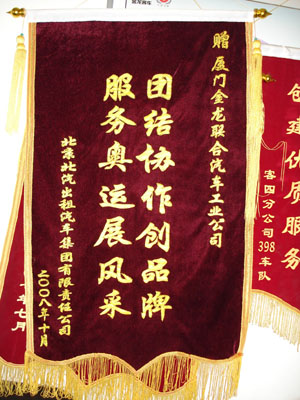 赠 厦门金龙联合汽车工业公司
团结协作创品牌
服务奥运展风采
北京北汽出租汽车集团有限责任公司
二〇〇八年十月
创建优质服务
客四分公司
398车队
年七月